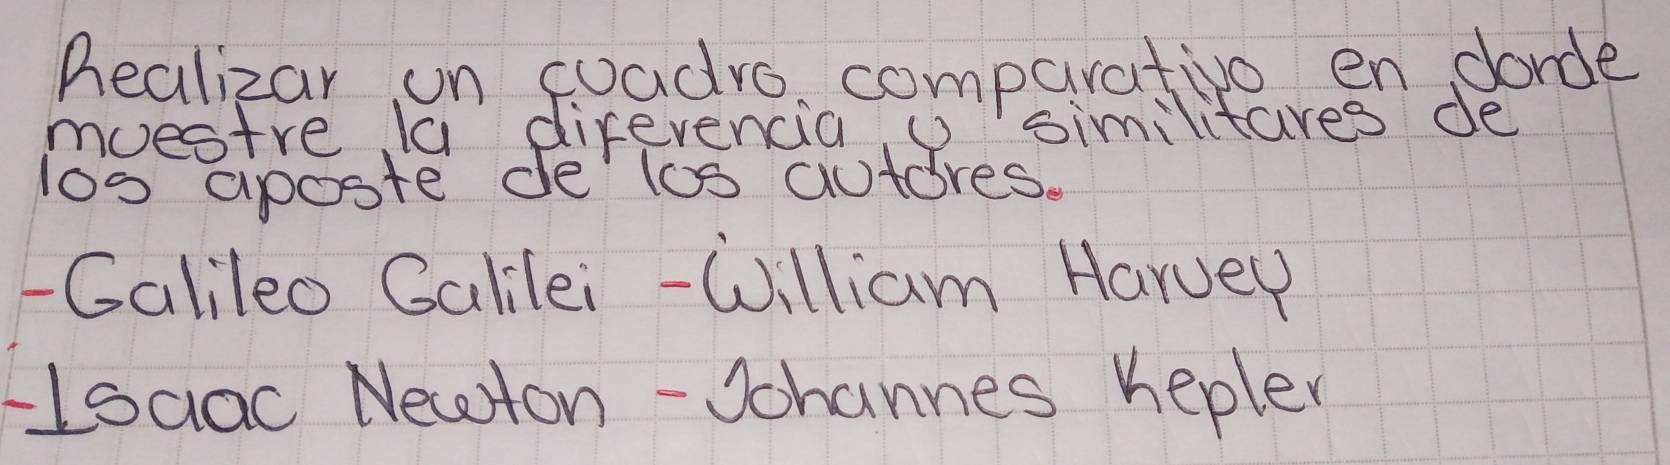 Realizar un cuadro comparativo en donde
muestre la diferencia y similitares de
los aposte de los autores.
-Galileo Galilei -William Harvey
-Isaac Newton -Johannes Kepler